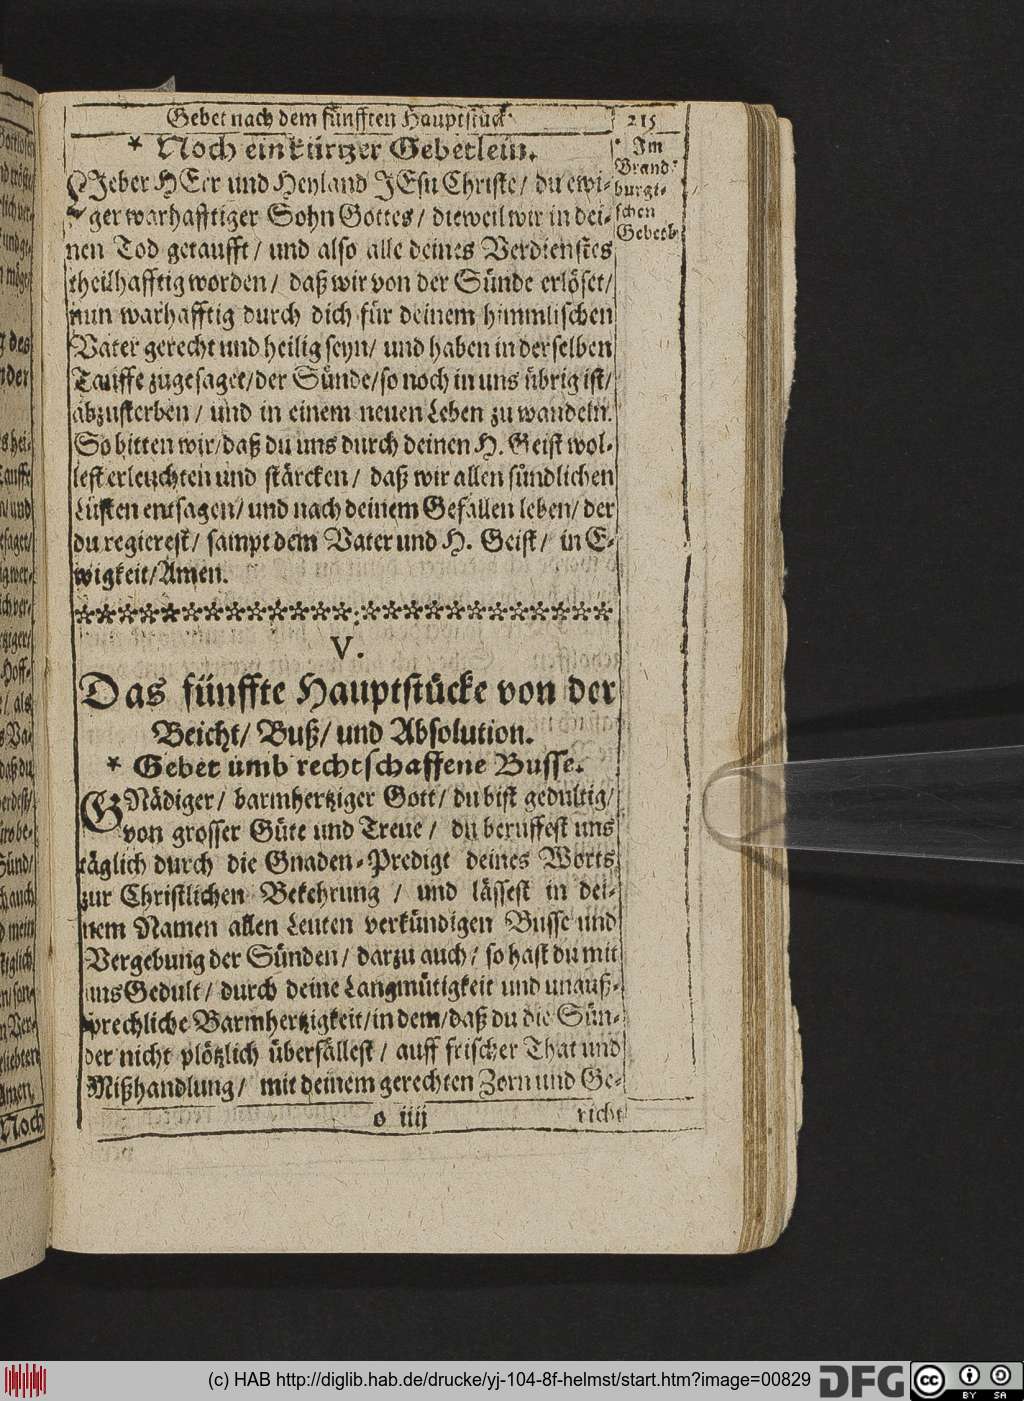 Gebet nach dem fünfften Hauptstück. 215
* Noch ein kürtzer Gebetlein.
Im
Brand-
burgi-
schen
Gebetb.
LJeber HErr und Heyland JEsu Christe/ du ewi-
ger warhafftiger Sohn Gottes/ dieweil wir in dei-
nen Tod getaufft/ und also alle deines Verdienstes
theilhafftig worden/ daß wir von der Sünde erlöset/
nun warhafftig durch dich für deinem himmlischen
Vater gerecht und heilig seyn/ und haben in derselben
Tauffe zugesaget/ der Sünde/ so noch in uns übrig ist/
abzusterben/ und in einem neuen Leben zu wandeln.
So bitten wir/ daß du uns durch deinen H. Geist wol-
lest erleuchten und stärcken/ daß wir allen sündlichen
Lüsten entsagen/ und nach deinem Gefallen leben/ der
du regierest/ sampt dem Vater und H. Geist/ in E-
wigkeit/ Amen.
V.
Das fünffte Hauptstücke von der
Beicht/ Buß/ und Absolution.
* Gebet umb rechtschaffene Busse.
GNädiger/ barmhertziger Gott/ du bist gedultig/
von grosser Güte und Treue/ du beruffest uns
täglich durch die Gnaden-Predigt deines Worts
zur Christlichen Bekehrung/ und lässest in dei-
nem Namen allen Leuten verkündigen Busse und
Vergebung der Sünden/ darzu auch/ so hast du mit
uns Gedult/ durch deine Langmütigkeit und unauß-
sprechliche Barmhertzigkeit/ in dem/ daß du die Sün-
der nicht plötzlich überfällest/ auff frischer That und
Mißhandlung/ mit deinem gerechten Zorn und Ge-
o iiij richt
Noch
(c) HAB http://diglib.hab.de/drucke/yj-104-8f-helmst/start.htm?image=00829
DFG
cc BY SA